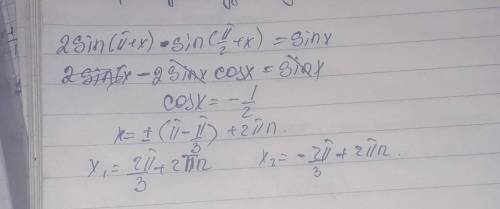 2sin(π+x) · sin(π/2+x) = sinx
- 2sinx cosx = sinx
cosx = -1/2
x = ± (π - π/3) + 2πn.
x₁ = 2π/3 + 2πn x₂ = - 2π/3 + 2πn.